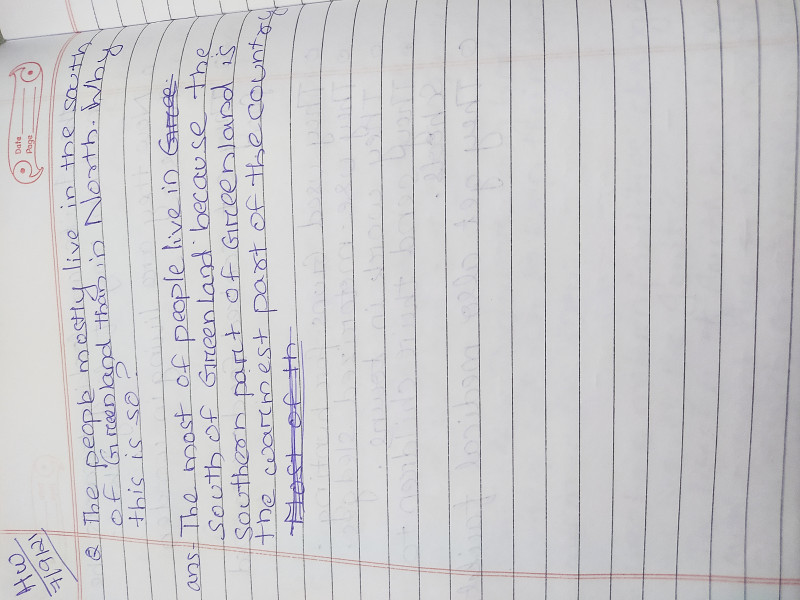 HW
7/9/21
Date
Page
Q The people mostly live in the south
of Greenland than in North. Why
this is so?
ans- The most of people live in Gree
south of Greenland because the
Southern part of Greenland is
the warmest part of the country
Most of th